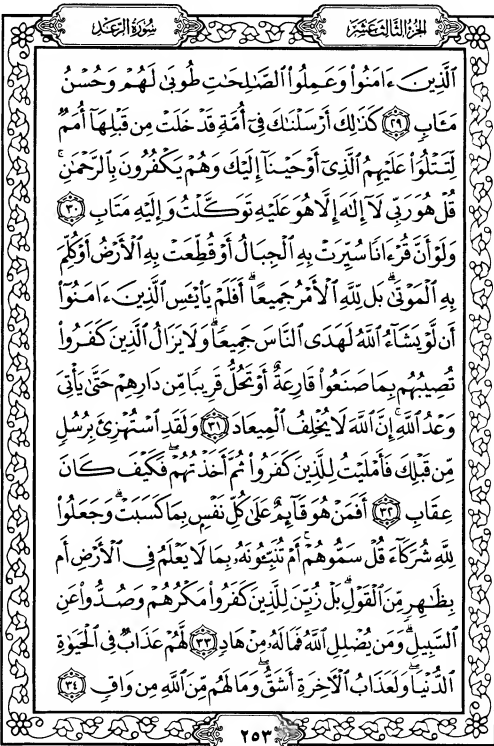 سُورَةُ الرَّعْدِ
الجُزْءُ الثَّالِثَ عَشَرَ
ٱلَّذِينَ ءَامَنُوا۟ وَعَمِلُوا۟ ٱلصَّٰلِحَٰتِ طُوبَىٰ لَهُمْ وَحُسْنُ
مَـَٔابٍ ٢٩ كَذَٰلِكَ أَرْسَلْنَٰكَ فِىٓ أُمَّةٍ قَدْ خَلَتْ مِن قَبْلِهَآ أُمَمٌ
لِّتَتْلُوَا۟ عَلَيْهِمُ ٱلَّذِىٓ أَوْحَيْنَآ إِلَيْكَ وَهُمْ يَكْفُرُونَ بِٱلرَّحْمَٰنِ ۚ
قُلْ هُوَ رَبِّى لَآ إِلَٰهَ إِلَّا هُوَ عَلَيْهِ تَوَكَّلْتُ وَإِلَيْهِ مَتَابِ ٣٠
وَلَوْ أَنَّ قُرْءَانًا سُيِّرَتْ بِهِ ٱلْجِبَالُ أَوْ قُطِّعَتْ بِهِ ٱلْأَرْضُ أَوْ كُلِّمَ
بِهِ ٱلْمَوْتَىٰ ۗ بَل لِّلَّهِ ٱلْأَمْرُ جَمِيعًا ۗ أَفَلَمْ يَا۟يْـَٔسِ ٱلَّذِينَ ءَامَنُوٓا۟
أَن لَّوْ يَشَآءُ ٱللَّهُ لَهَدَى ٱلنَّاسَ جَمِيعًا ۗ وَلَا يَزَالُ ٱلَّذِينَ كَفَرُوا۟
تُصِيبُهُم بِمَا صَنَعُوا۟ قَارِعَةٌ أَوْ تَحُلُّ قَرِيبًا مِّن دَارِهِمْ حَتَّىٰ يَأْتِىَ
وَعْدُ ٱللَّهِ ۚ إِنَّ ٱللَّهَ لَا يُخْلِفُ ٱلْمِيعَادَ ٣١ وَلَقَدِ ٱسْتُهْزِئَ بِرُسُلٍ
مِّن قَبْلِكَ فَأَمْلَيْتُ لِلَّذِينَ كَفَرُوا۟ ثُمَّ أَخَذْتُهُمْ ۖ فَكَيْفَ كَانَ
عِقَابِ ٣٢ أَفَمَنْ هُوَ قَآئِمٌ عَلَىٰ كُلِّ نَفْسٍۭ بِمَا كَسَبَتْ ۗ وَجَعَلُوا۟
لِلَّهِ شُرَكَآءَ قُلْ سَمُّوهُمْ ۚ أَمْ تُنَبِّـُٔونَهُۥ بِمَا لَا يَعْلَمُ فِى ٱلْأَرْضِ أَم
بِظَٰهِرٍ مِّنَ ٱلْقَوْلِ ۗ بَلْ زُيِّنَ لِلَّذِينَ كَفَرُوا۟ مَكْرُهُمْ وَصُدُّوا۟ عَنِ
ٱلسَّبِيلِ ۗ وَمَن يُضْلِلِ ٱللَّهُ فَمَا لَهُۥ مِنْ هَادٍ ٣٣ لَّهُمْ عَذَابٌ فِى ٱلْحَيَوٰةِ
ٱلدُّنْيَا ۖ وَلَعَذَابُ ٱلْءَاخِرَةِ أَشَقُّ ۖ وَمَا لَهُم مِّنَ ٱللَّهِ مِن وَاقٍ ٣٤
٢٥٣